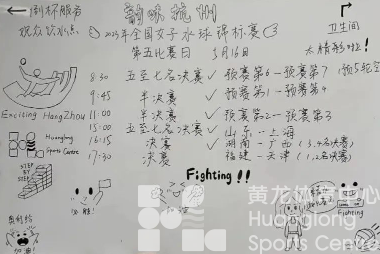 韵味杭州
观众饮水点
卫生间
2025年全国女子水球锦标赛
第五比赛日 5月16日
太精彩啦!
8:30 五至七名决赛 ✓ 预赛第6-预赛第7
9:45 半决赛 ✓ 预赛第1-预赛第4
11:00 半决赛 ✓ 预赛第2-预赛第3
15:00 五至七名决赛 ✓ 山东--上海
16:15 决赛 ✓ 湖南-广西 (3,4名决赛)
17:30 决赛 ✓ 福建-天津 (1,2名决赛)
Exciting HangZhou
Huanglong
Sports Centre
STEP
BY
STEP
Fighting!!
必胜!
奥利给
加油!
加油
Fighting
黄龙体育中心
Huanglong
Sports Centre